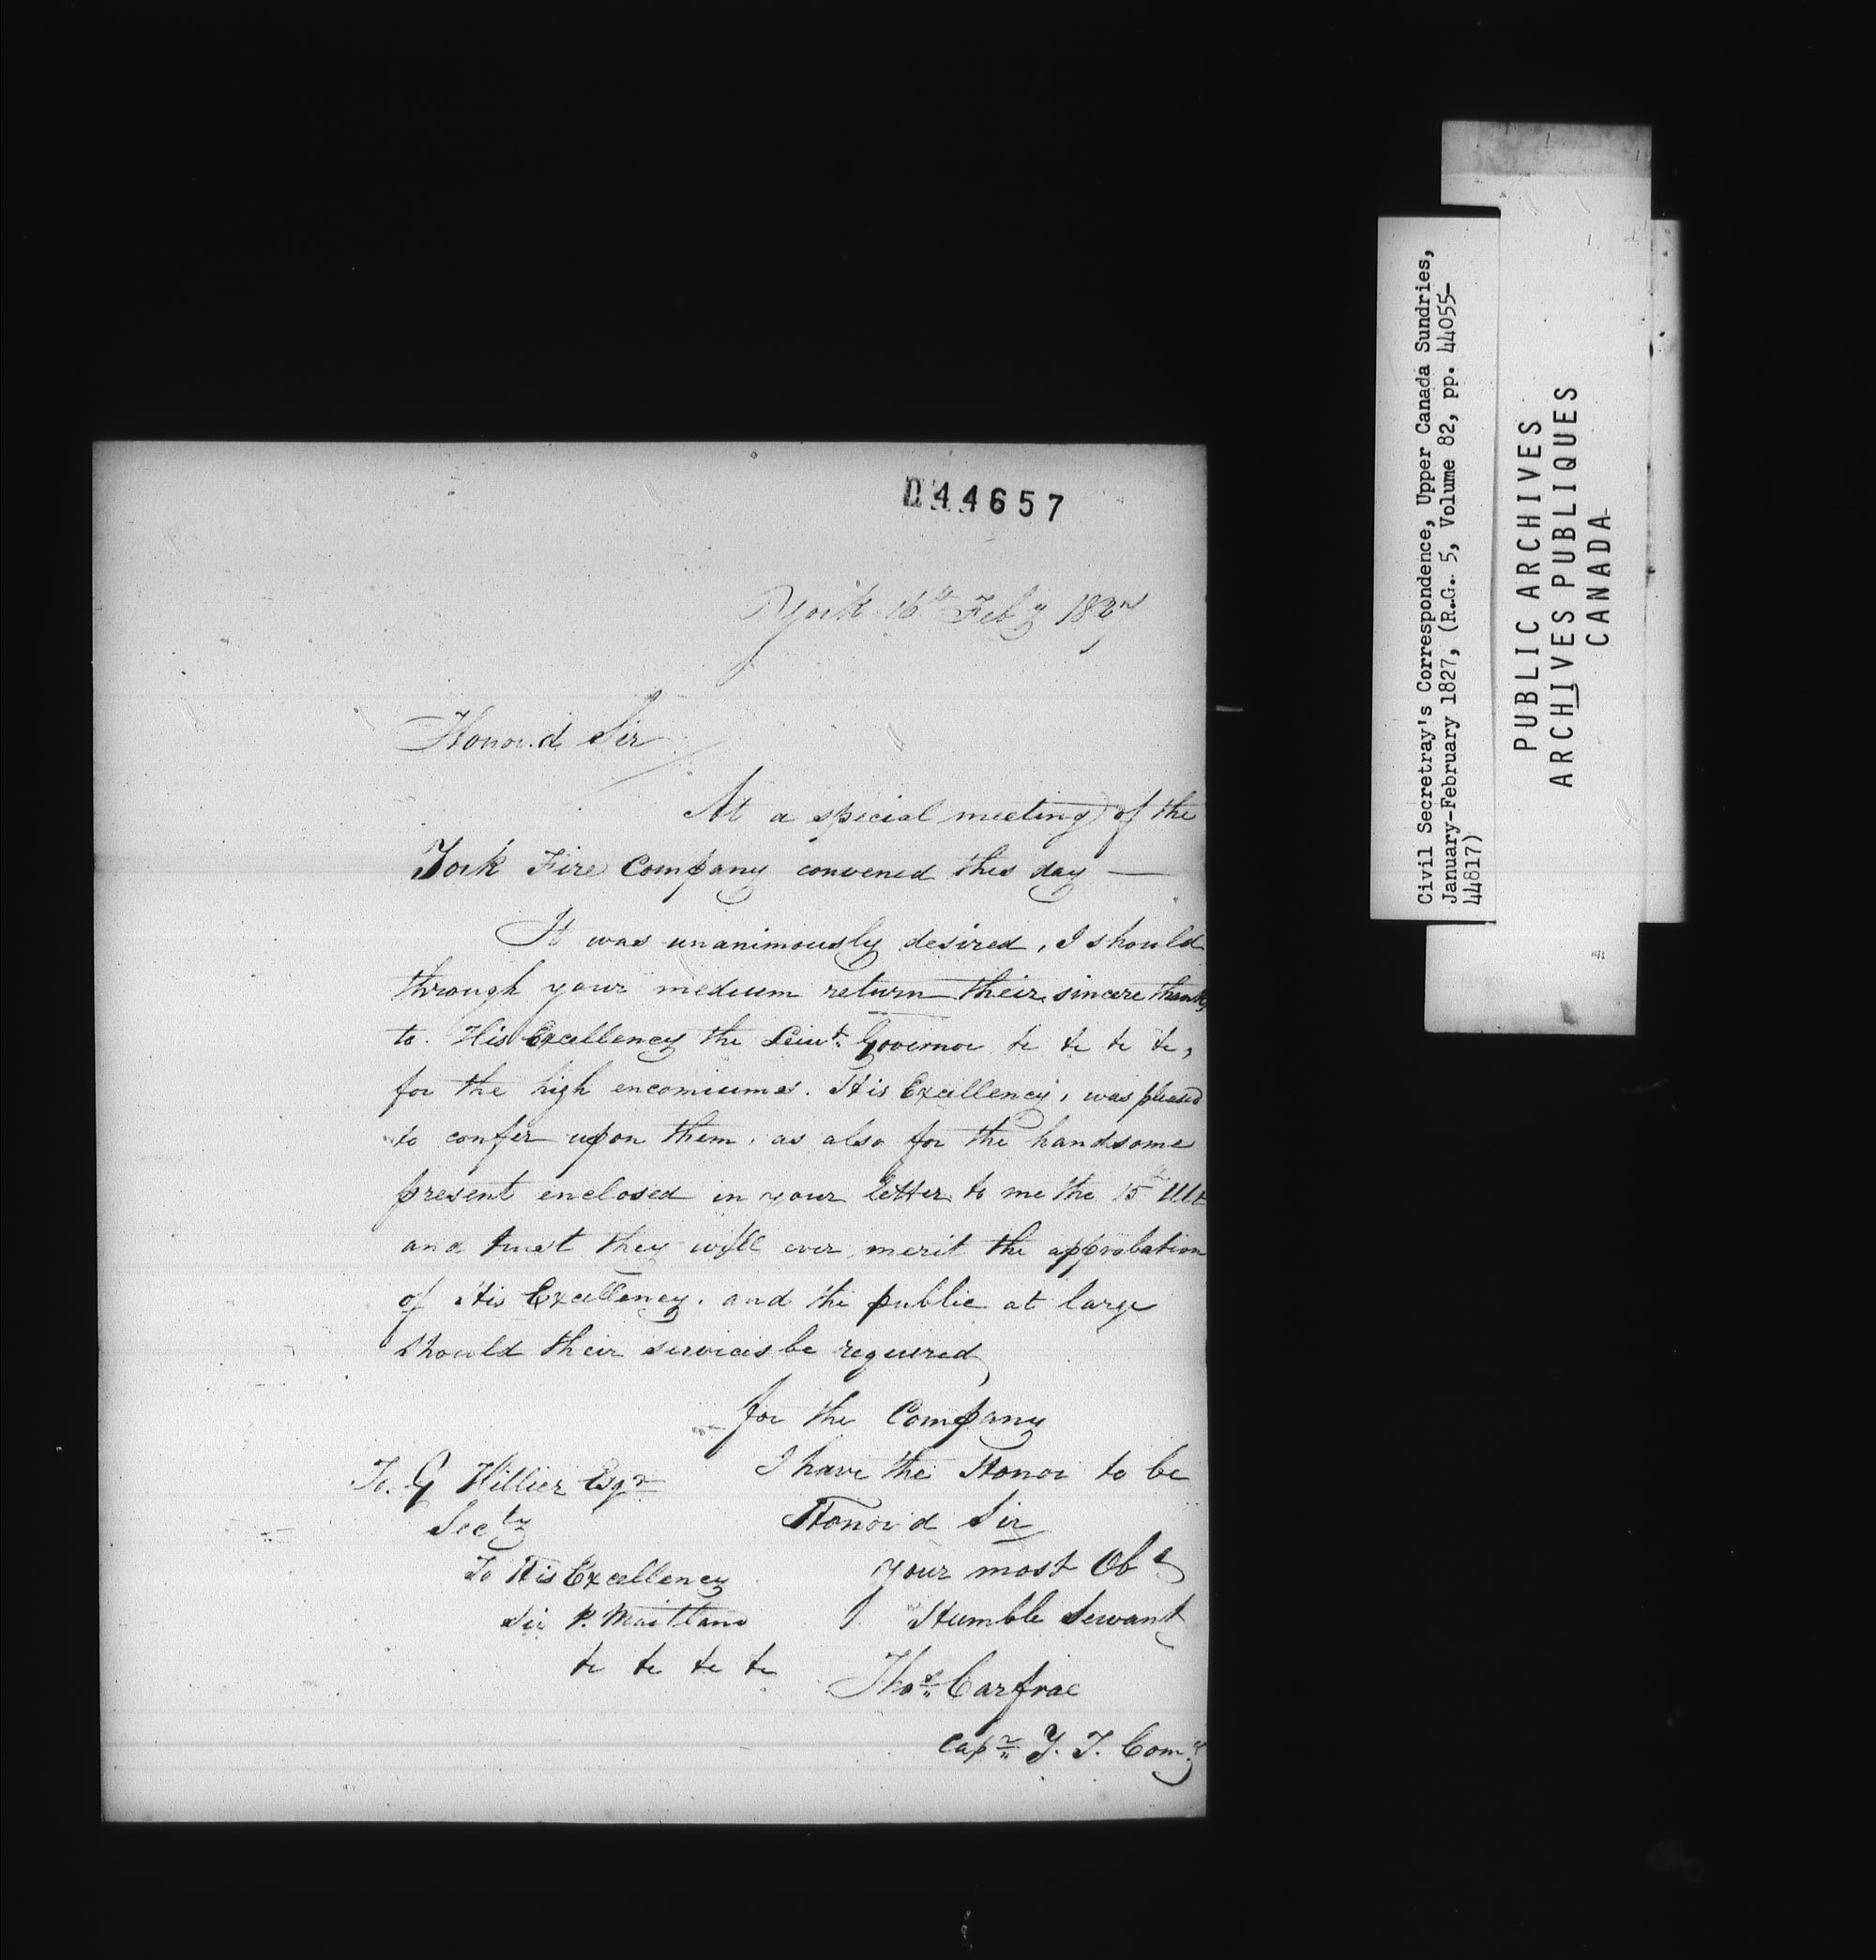 D44657
York 16th Feby 1827
Honor.d Sir
At a special meeting of the
York Fire Company convened this day —
It was unanimously desired, I should
through your medium return their sincere thanks
to His Excellency the Leiut. Governor &c &c &c &c,
for the high encomiums. His Excellency, was pleased
to confer upon them, as also for the handsome
present enclosed in your letter to me the 15th Ult
and trust they will ever merit the approbation
of His Excellency. and the public at large
should their services be required
for the Company
I have the Honor to be
Honor d Sir
your most Obt
Humble Servant
Thos. Carfrae
Capn Y. F. Comy
To. G Hillier Esqr
Secty
To His Excellency
Sir P. Maitland
&c &c &c &c
Civil Secretray's Correspondence, Upper Canada Sundries,
January-February 1827, (R.G. 5, Volume 82, pp. 44055-
44817)
PUBLIC ARCHIVES
ARCHIVES PUBLIQUES
CANADA